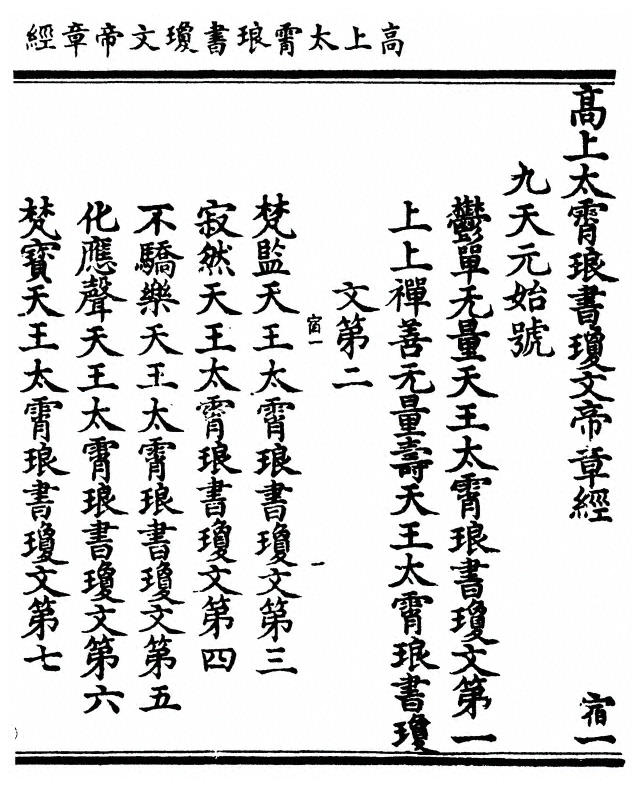 高上太霄琅書瓊文帝章經
高上太霄琅書瓊文帝章經
宿一
九天元始號
鬱單无量天王太霄琅書瓊文第一
上上禪善无量壽天王太霄琅書瓊
文第二
宿一
一
梵監天王太霄琅書瓊文第三
寂然天王太霄琅書瓊文第四
不驕樂天王太霄琅書瓊文第五
化應聲天王太霄琅書瓊文第六
梵寶天王太霄琅書瓊文第七